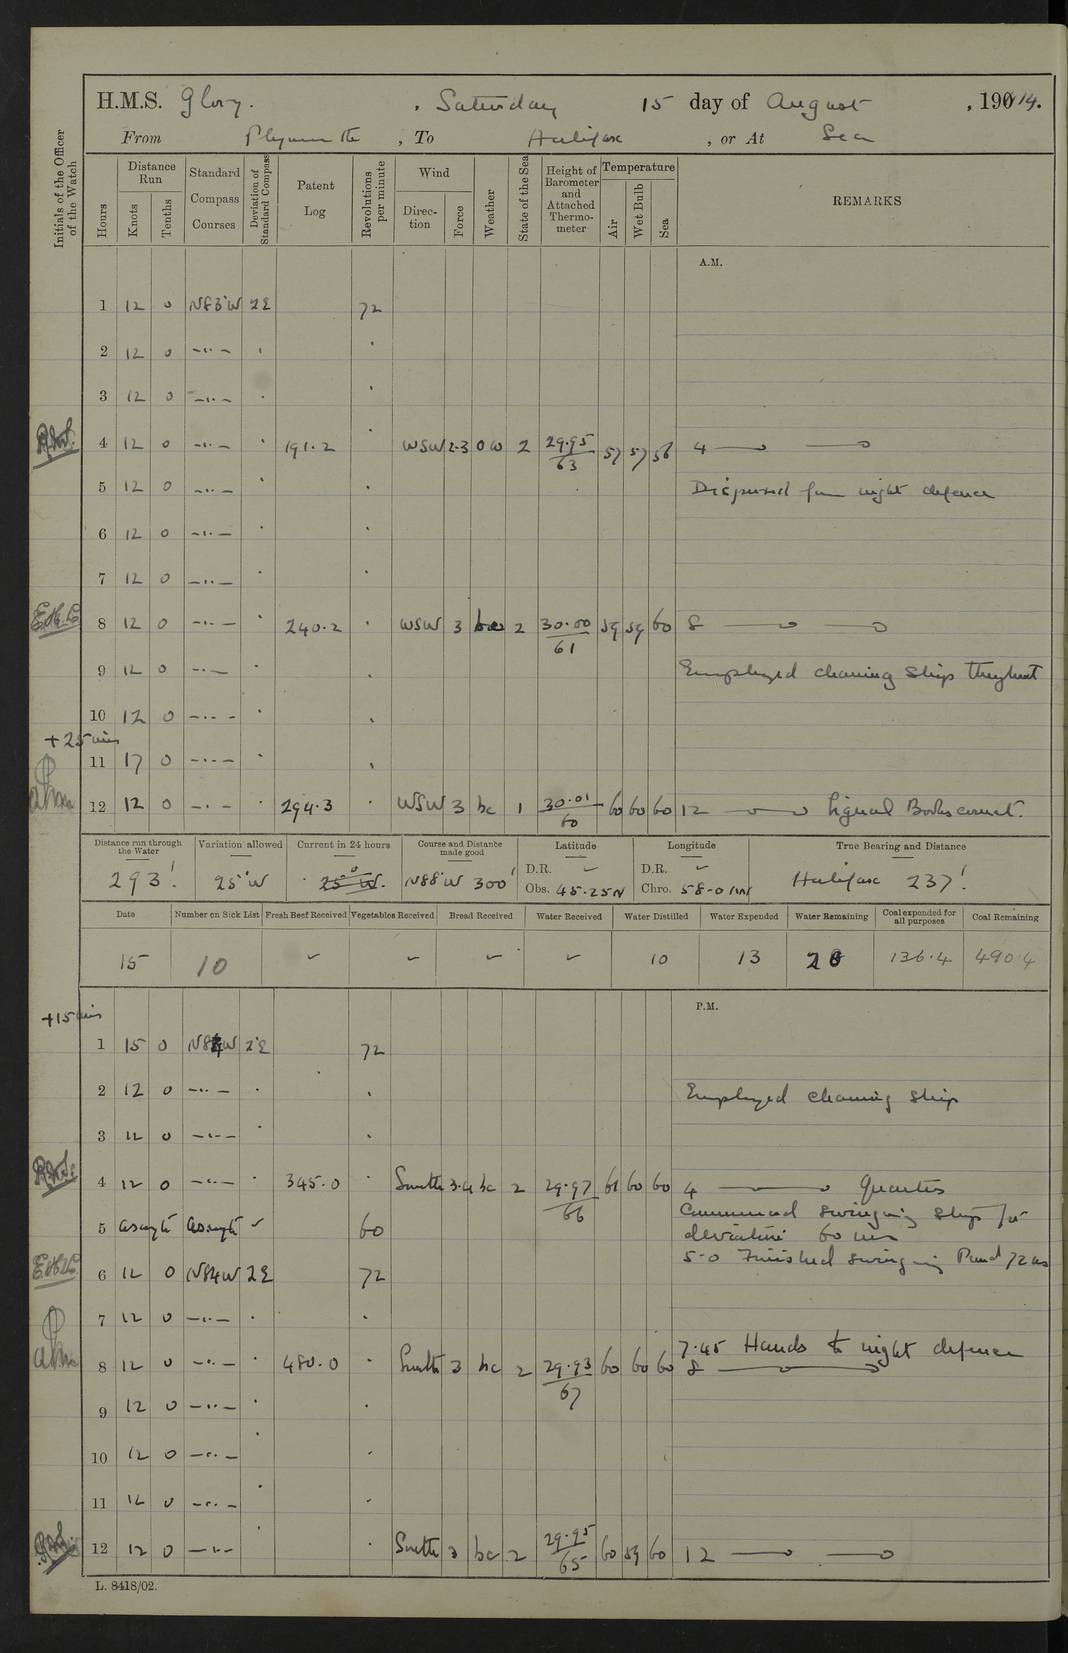 H.M.S. Glory. , Saturday 15 day of August , 1914.
From Plymouth , To Halifax , or At Sea
Initials of the Officer of the Watch
Hours
Distance Run
Knots
Tenths
Standard Compass Courses
Deviation of Standard Compass
Patent Log
Revolutions per minute
Wind
Direction
Force
Weather
State of the Sea
Height of Barometer and Attached Thermometer
Temperature
Air
Wet Bulb
Sea
REMARKS
A.M.
1 12 0 N83°W 2E 72
2 12 0 —..— .
3 12 0 —..— .
4 12 0 —..— 191.2 WSW 2-3 ow 2 29.95/63 57 57 56 4
5 12 0 —..— Dispersed from night defence
6 12 0 —..—
7 12 0 —..—
8 12 0 —..— 240.2 WSW 3 2 30.00/61 59 59 60 8
9 12 0 —..— Employed cleaning ship throughout
10 12 0 —..—
+25 mins
11 17 0 —..—
12 12 0 —.— 294.3 WSW 3 bc 1 30.01/60 60 60 60 12 Signal Books correct.
Distance run through the Water 293'.
Variation allowed 25°W
Current in 24 hours
Course and Distance made good N88°W 300'
Latitude D.R. ✓ Obs. 45.25N
Longitude D.R. ✓ Chro. 58-0
True Bearing and Distance Halifax 237'.
Date Number on Sick List Fresh Beef Received Vegetables Received Bread Received Water Received Water Distilled Water Expended Water Remaining Coal expended for all purposes Coal Remaining
15 10 ✓ ✓ ✓ ✓ 10 13 136.4 490.4
P.M.
+15 mins
1 15 0 N84W 2°E 72
2 12 0 —..— Employed cleaning ship
3 12 0 —..—
4 12 0 —..— 345.0 Smth 3.4 bc 2 29.97/66 61 60 60 4 Quarters
Commenced swinging ship for
5 asreqte asreqte ✓ 60 deviation 60 revs
5-0 Finished swinging Proced 72 revs
6 12 0 N84W 2E 72
7 12 0 —..—
7.45 Hands to night defence
8 12 0 —..— 480.0 Smth 3 bc 2 29.93/67 60 60 60 8
9 12 0 —..—
10 12 0 —..—
11 12 0 —..—
12 12 0 —..— Smth 3 bc 2 29.95/65 60 59 60 12
L. 8418/02.